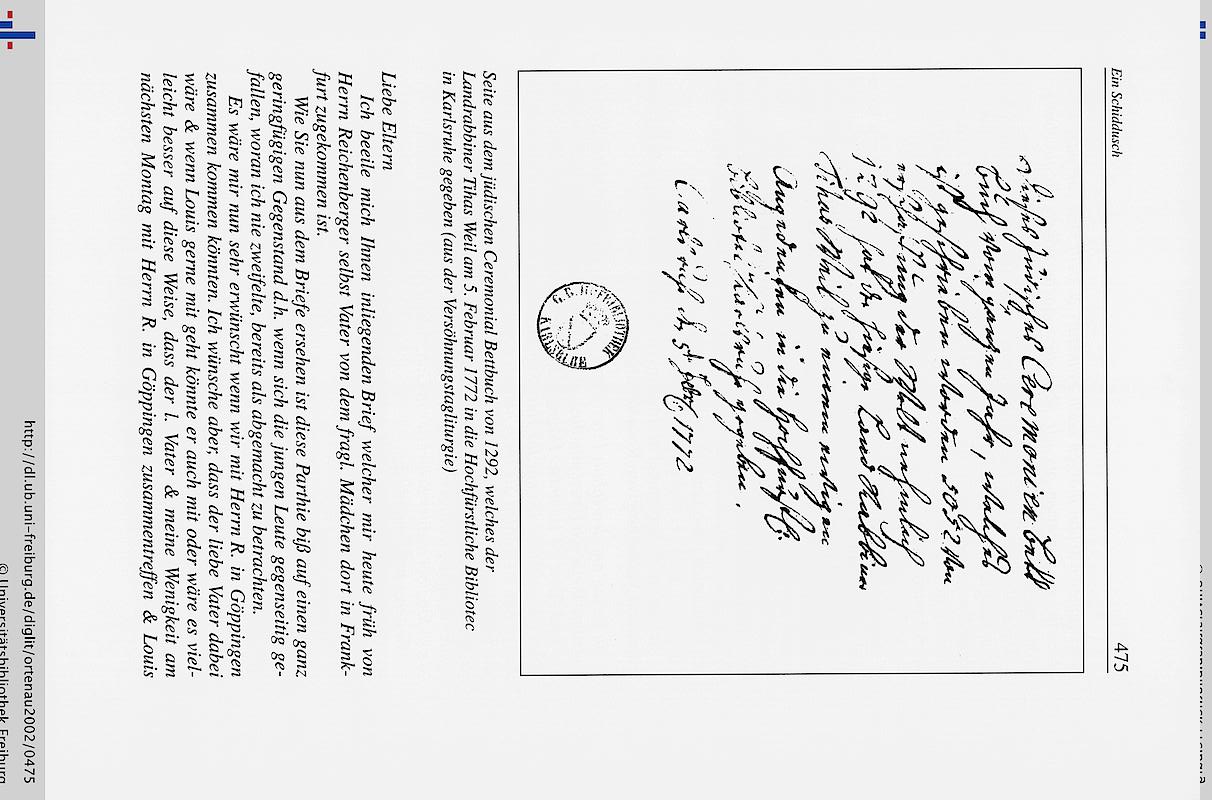 Ein Schiddusch 475
Jüdisches Ceremonien Bett
Buch vom ganzen Jahr, welches
ist geschrieben worden 5052 von
Erschaffung der Welt nehmlich
hat der hiesige Land Rabbiner
Tihas Weil zu einem ewigen
Angedenken in die Hochfürstl.
Bibliothec in Carlsruh gegeben.
Carlsruh d. 5t. 1772
G.B.H.BIBLIOTHEK
KARLSRUHE
Seite aus dem jüdischen Ceremonial Bettbuch von 1292, welches der
Landrabbiner Tihas Weil am 5. Februar 1772 in die Hochfürstliche Bibliotec
in Karlsruhe gegeben (aus der Versöhnungstagliturgie)
Liebe Eltern
Ich beeile mich Ihnen inliegenden Brief welcher mir heute früh von
Herrn Reichenberger selbst Vater von dem fragl. Mädchen dort in Frank-
furt zugekommen ist.
Wie Sie nun aus dem Briefe ersehen ist diese Parthie biß auf einen ganz
geringfügigen Gegenstand d.h. wenn sich die jungen Leute gegenseitig ge-
fallen, woran ich nie zweifelte, bereits als abgemacht zu betrachten.
Es wäre mir nun sehr erwünscht wenn wir mit Herrn R. in Göppingen
zusammen kommen könnten. Ich wünsche aber, dass der liebe Vater dabei
wäre & wenn Louis gerne mit geht könnte er auch mit oder wäre es viel-
leicht besser auf diese Weise, dass der l. Vater & meine Wenigkeit am
nächsten Montag mit Herrn R. in Göppingen zusammentreffen & Louis
http://dl.ub.uni-freiburg.de/diglit/ortenau2002/0475
© Universitätsbibliothek Freiburg